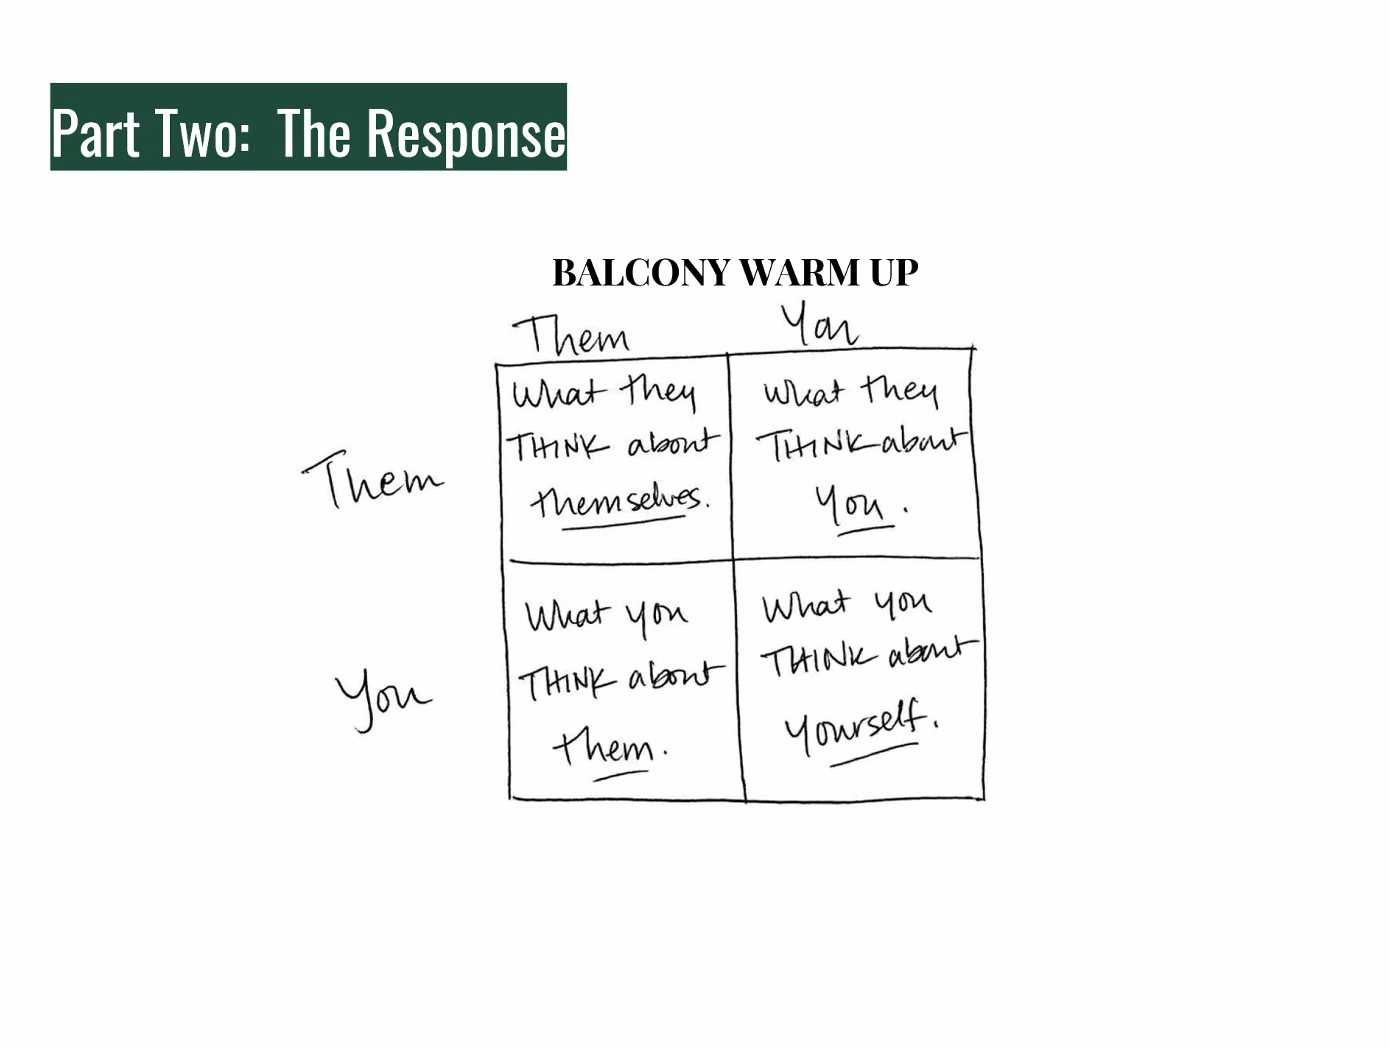 Part Two:  The Response
BALCONY WARM UP
Them
You
What they
THINK about
themselves.
What they
THINK about
You.
Them
What you
THINK about
them.
What you
THINK about
yourself.
You